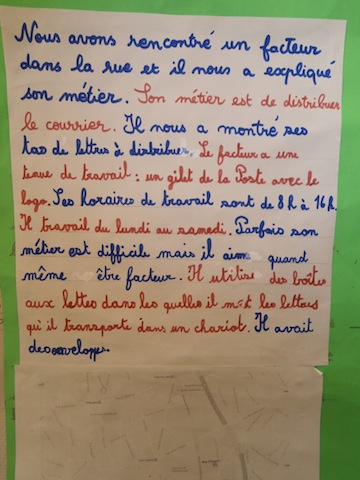 Nous avons rencontré un facteur
dans la rue et il nous a expliqué
son métier. Son métier est de distribuer
le courrier. Il nous a montré ses
tas de lettres à distribuer. Le facteur a une
tenue de travail : un gilet de la Poste avec le
logo. Ses horaires de travail sont de 8h à 16h.
Il travail du lundi au samedi. Parfois son
métier est difficile mais il aime quand
même être facteur. Il utilise des boîtes
aux lettes dans les quelles il met les lettres
qu'il transporte dans un chariot. Il avait
des enveloppes.